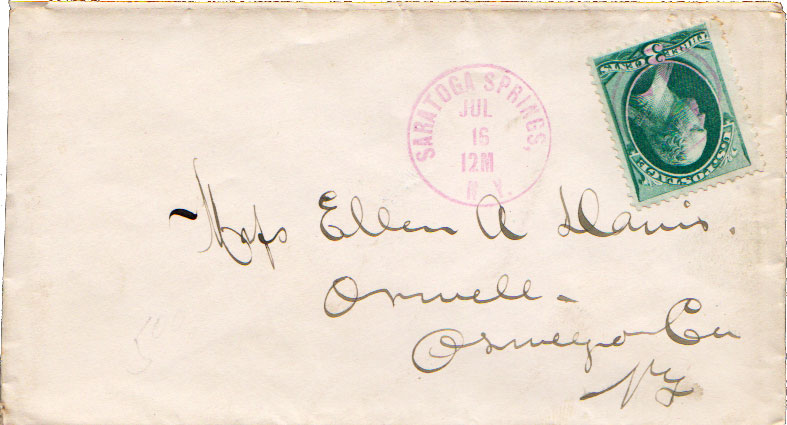 SARATOGA SPRINGS,
JUL
16
12M
N.Y.
U.S. POSTAGE
3
Miss Ellen A Davis.
Orwell.
Oswego Co
NY